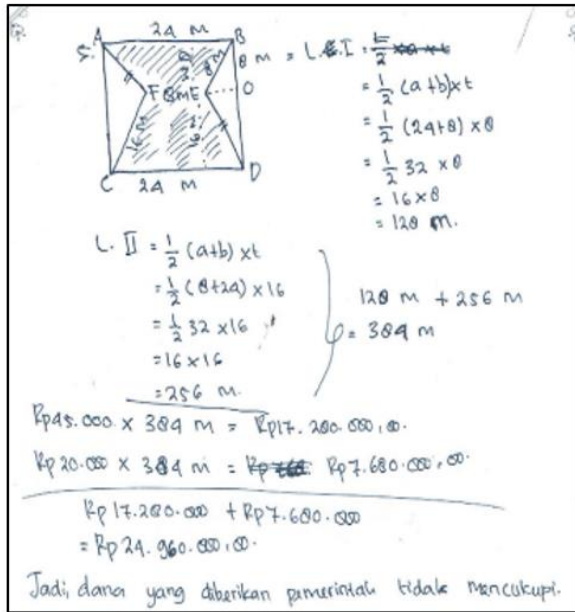 24 M
A B
8 M 8 M
F 8 M E O
16 M
C D
24 M
L. I =
= 1/2 (a+b)xt
= 1/2 (24+8) x 8
= 1/2 32 x 8
= 16 x 8
= 128 m.
L. II = 1/2 (a+b) xt
= 1/2 (8+24) x 16
= 1/2 32 x 16
= 16 x 16
= 256 m.
128 m + 256 m
= 384 m
Rp45.000 x 384 m = Rp17.280.000,00.
Rp 20.000 x 384 m = Rp 7.680.000,00.
Rp 17.280.000 + Rp 7.680.000
= Rp 24.960.000,00.
Jadi, dana yang diberikan pemerintah tidak mencukupi.